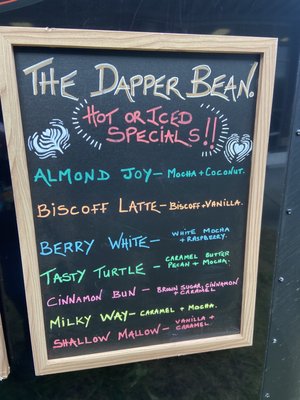 THE DAPPER BEAN.
HOT OR ICED
SPECIALS!!
ALMOND JOY - MOCHA + COCONUT.
BISCOFF LATTE - BISCOFF + VANILLA.
BERRY WHITE - WHITE MOCHA
+ RASPBERRY.
TASTY TURTLE - CARAMEL BUTTER
PECAN + MOCHA.
CINNAMON BUN - BROWN SUGAR, CINNAMON
+ CARAMEL
MILKY WAY - CARAMEL + MOCHA.
SHALLOW MALLOW - VANILLA +
CARAMEL.